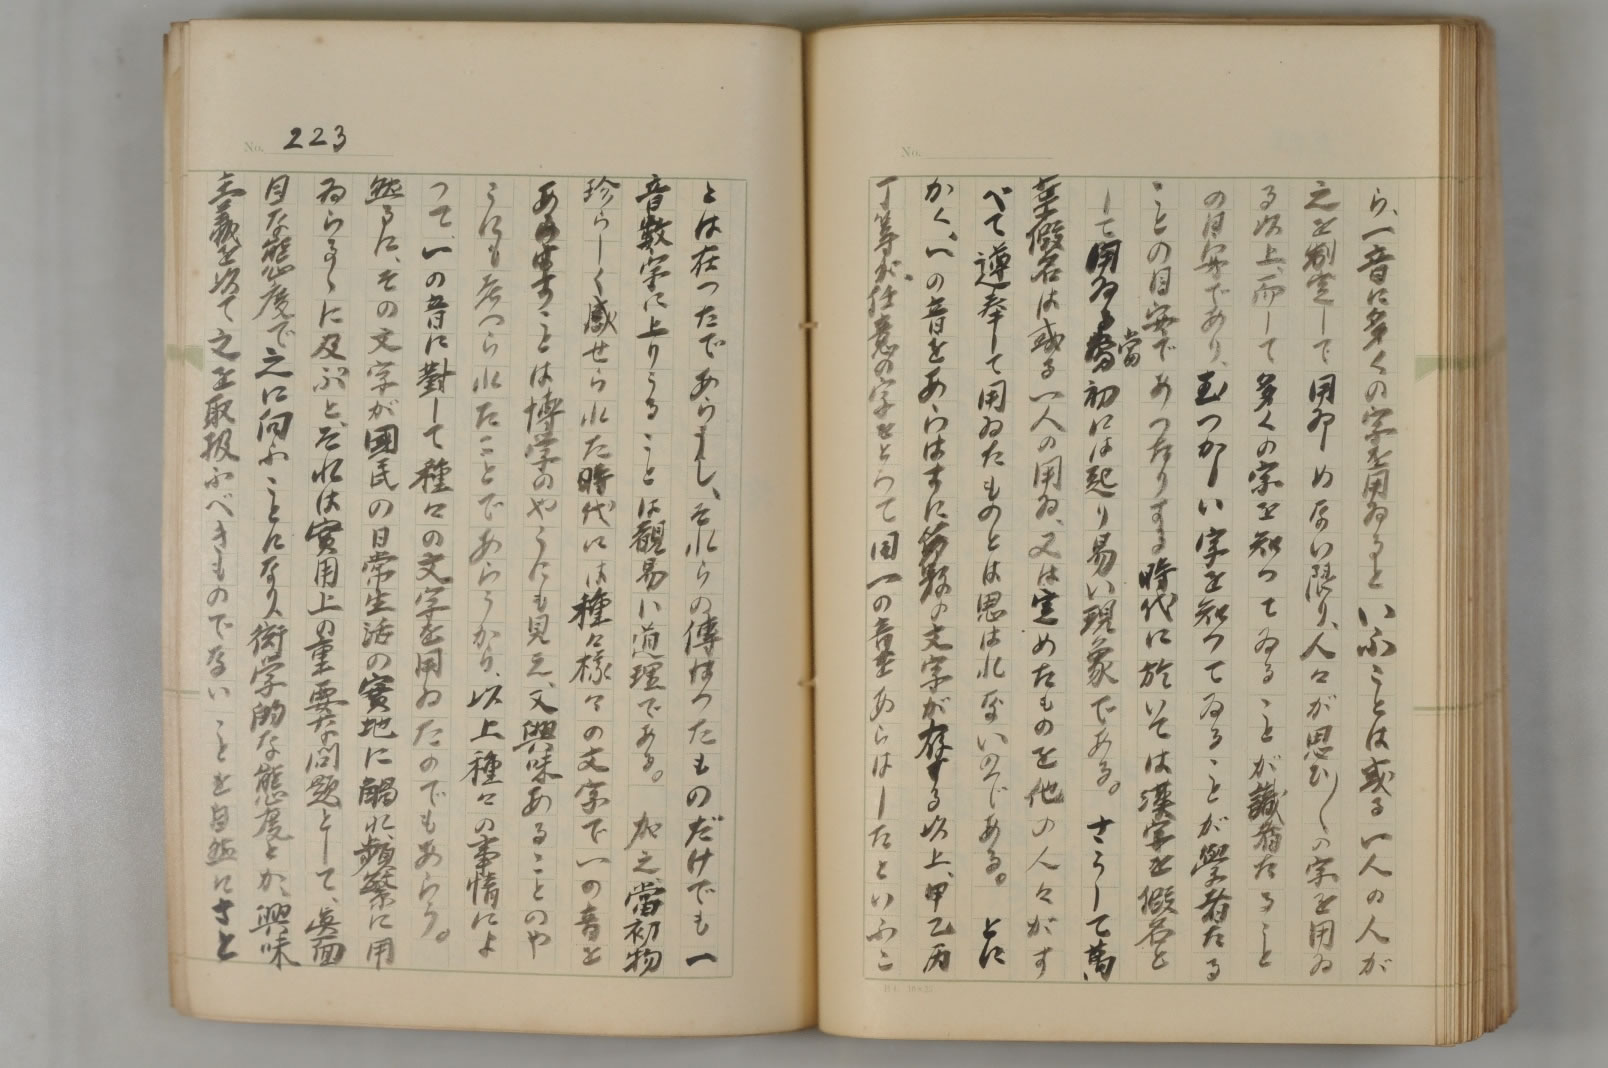 ら、一音に多くの字を用ゐるといふことは或る一人の人が
之を制定して用ゐしめない限り、人々が思ひ〱の字を用ゐ
る以上、而して多くの字を知つてゐることが識者たること
の目安であり、むつかしい字を知つてゐることが学者たる
ことの目安であつたりする時代に於いては漢字を假名と
して用ゐる當初には起り易い現象である。さうして萬
葉假名は或る一人の用ゐ、又は定めたものを他の人々がす
べて遵奉して用ゐたものとは思はれないのである。とに
かく、一の音をあらはすに多数の文字が存する以上、甲乙丙
丁等が、任意の字をとつて同一の音をあらはしたといふこ
No. 223
とは在つたであらうし、それらの傳はつたものだけでも一
音数字に上りうることは観易い道理である。加之、當初物
珍らしく感せられた時代には種々様々の文字で一の音を
あらはすことは博学のやうにも見え、又興味あることのや
うにも考へられたことであらうから、以上種々の事情によ
つて、一の音に對して種々の文字を用ゐたのでもあらう。
然るに、その文字が國民の日常生活の實地に觸れ、頻繁に用
ゐらるゝに及ぶと、それは實用上の重要な問題として、真面
目な態度で之に向ふことになり、衒学的な態度とか、興味
主義を以て之を取扱ふべきものでないことを自然にさと
No.